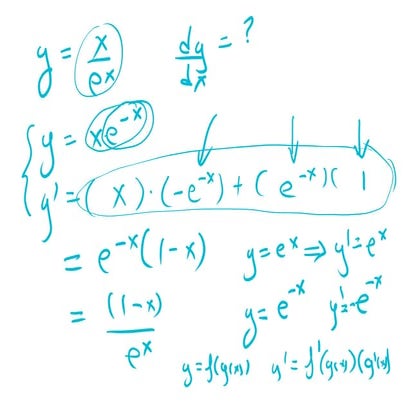 y = x/e^x    dy/dx = ?
y = xe^-x
y' = (x)·(-e^-x) + (e^-x)(1
= e^-x(1-x)    y = e^x ⇒ y' = e^x
= (1-x)/e^x    y = e^-x    y' = -e^-x
y = f(g(x))    y' = f'(g(x))(g'(x)